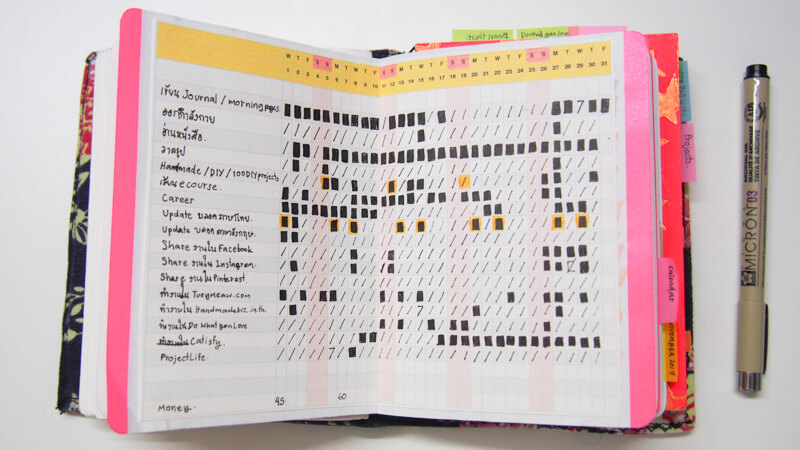 W T F S S M T W T F S S M T W T F S S M T W T F S S M T W T F
1 2 3 4 5 6 7 8 9 10 11 12 13 14 15 16 17 18 19 20 21 22 23 24 25 26 27 28 29 30 31
เขียน Journal / morning pages
ออกกำลังกาย
อ่านหนังสือ.
วาดรูป
Handmade / DIY / 100DIY projects
เขียน ecourse.
Career
Update บลอคภาษาไทย.
Update บลอคภาษาอังกฤษ.
Share งานใน Facebook
Share งานใน Instagram.
Share งานใน Pinterest
ทำงานใน Tueymeaw.com
ทำงานใน Handmadebiz.in.th.
ทำงานใน Do What you Love
ทำงานใน Catisfy.
ProjectLife.
Money.
45
60
Do what you love
Projects
calendar
NOVEMBER 2019
MICRON 03
ARCHIVAL INK